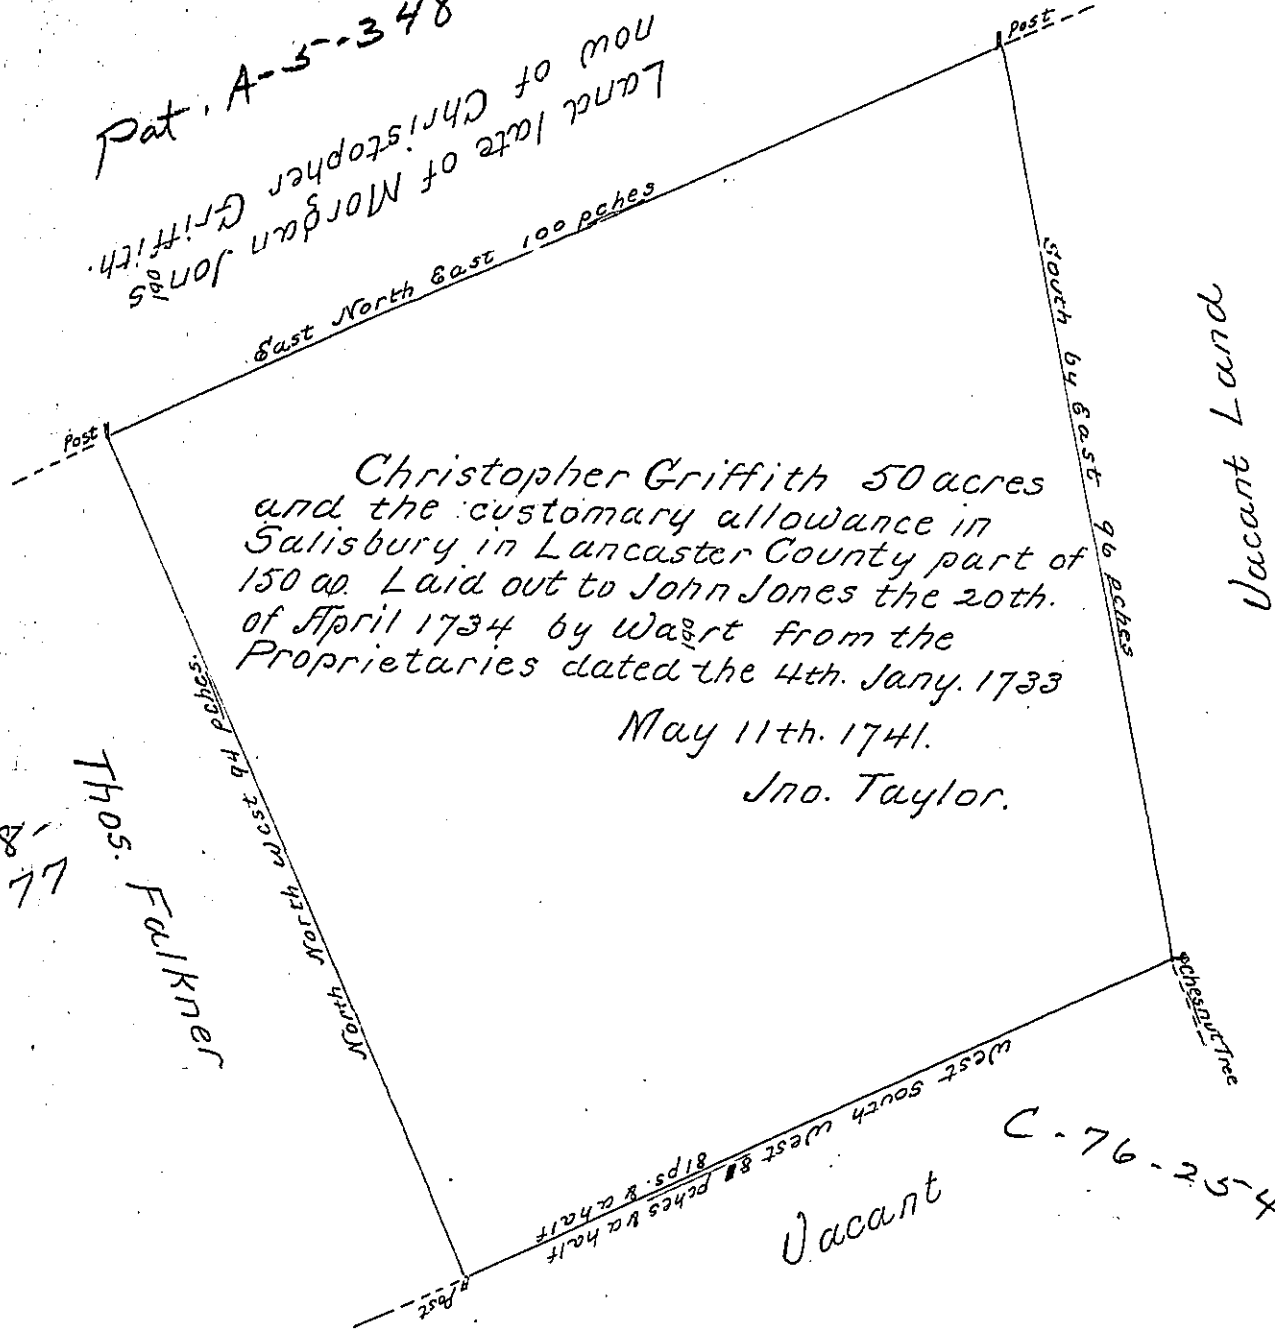 Pat. A-5-348
Land late of Morgan Jones
now of Christopher Griffith.
Post
East North East 100 pches
Post
South by East 96 pches
Vacant Land
Christopher Griffith 50 acres
and the customary allowance in
Salisbury in Lancaster County part of
150 ao. Laid out to John Jones the 20th.
of April 1734 by Warrt from the
Proprietaries dated the 4th. Jany. 1733
May 11th. 1741.
Jno. Taylor.
North North West 94 pches.
Thos. Falkner
77
chesnut Tree
West South West 81 pches & a half
81 ps. & a half
Post
Vacant
C-76-254